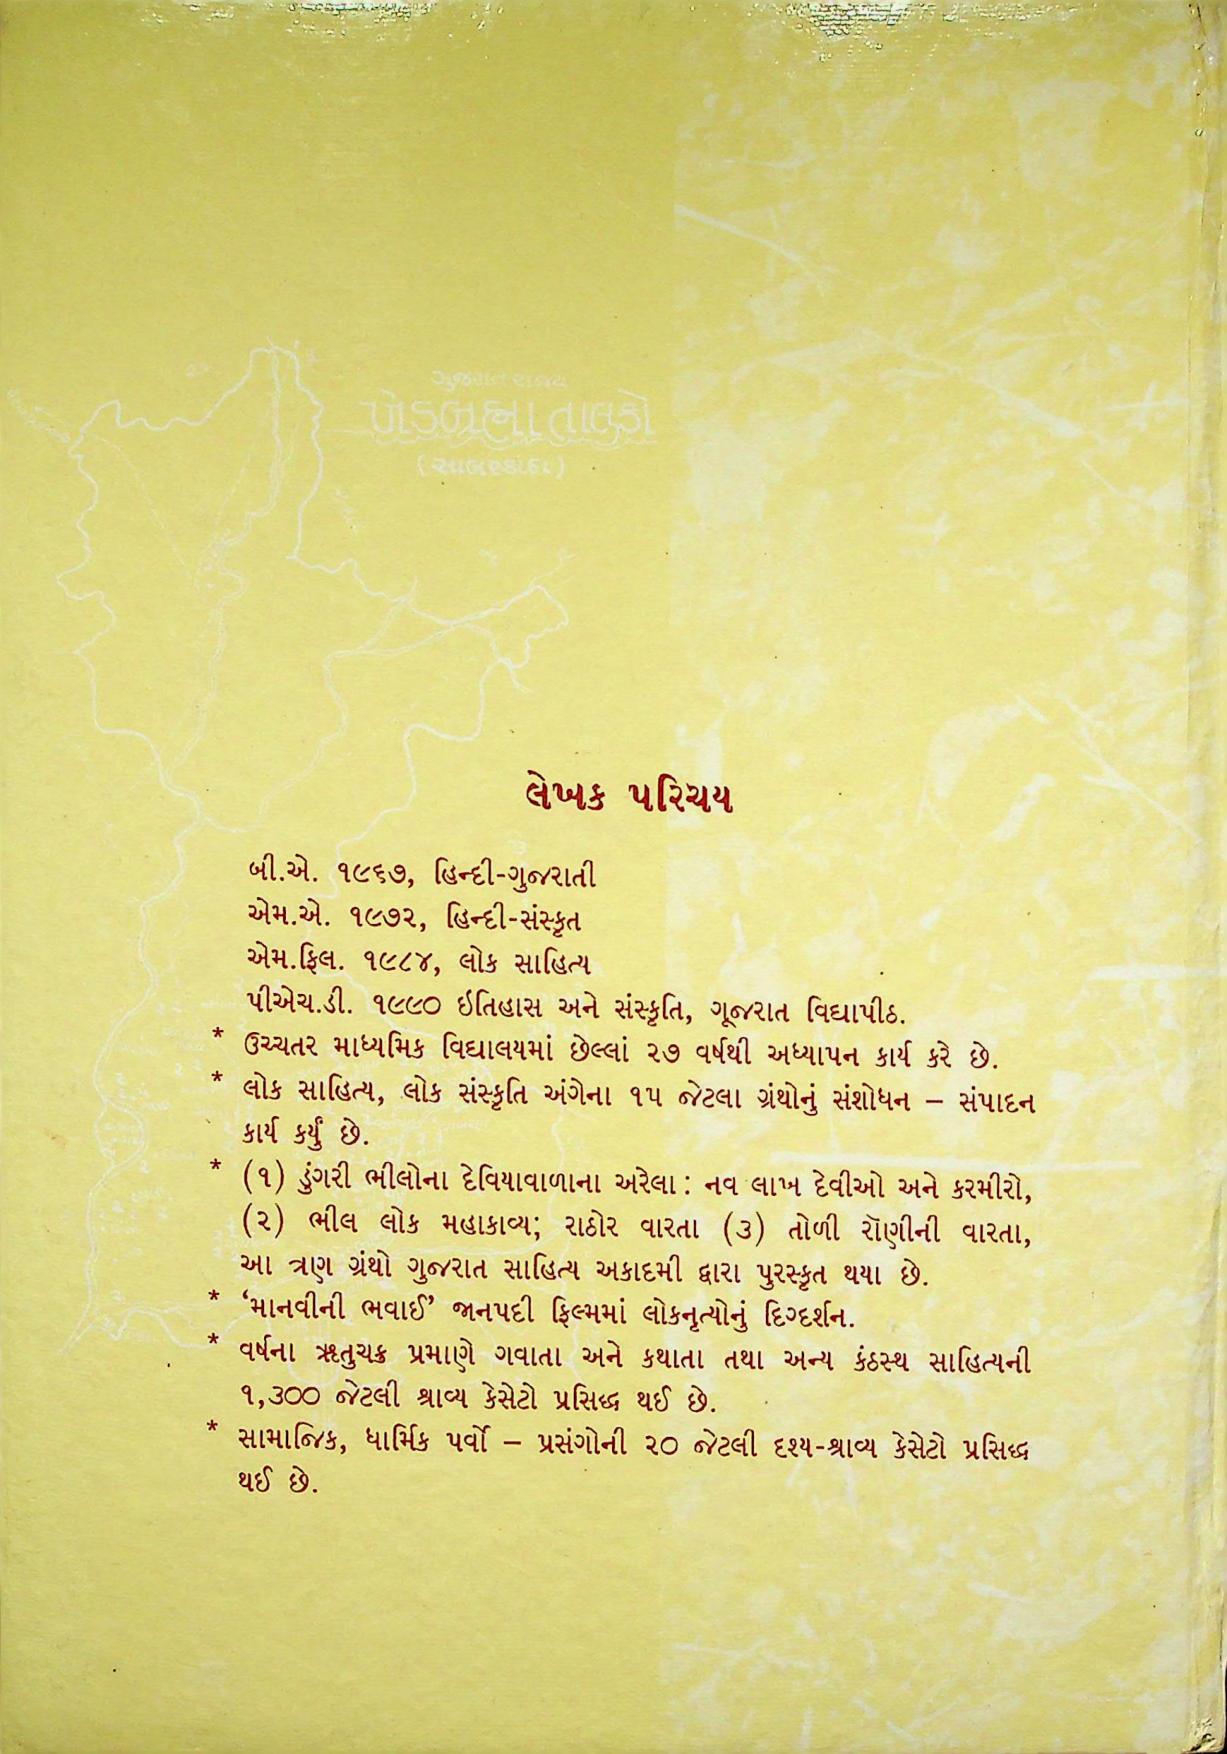 ગુજરાત રાજ્ય
ખેડબ્રહ્મા તાલુકો
(સાબરકાંઠા)
લેખક પરિચય
બી.એ. ૧૯૬૭, હિન્દી-ગુજરાતી
એમ.એ. ૧૯૭૨, હિન્દી-સંસ્કૃત
એમ.ફિલ. ૧૯૮૪, લોક સાહિત્ય
પીએચ.ડી. ૧૯૯૦ ઇતિહાસ અને સંસ્કૃતિ, ગૂજરાત વિદ્યાપીઠ.
* ઉચ્ચતર માધ્યમિક વિદ્યાલયમાં છેલ્લાં ૨૭ વર્ષથી અધ્યાપન કાર્ય કરે છે.
* લોક સાહિત્ય, લોક સંસ્કૃતિ અંગેના ૧૫ જેટલા ગ્રંથોનું સંશોધન – સંપાદન
કાર્ય કર્યું છે.
* (૧) ડુંગરી ભીલોના દેવિયાવાળાના અરેલા : નવ લાખ દેવીઓ અને કરમીરો,
(૨) ભીલ લોક મહાકાવ્ય; રાઠોર વારતા (૩) તોળી રૉણીની વારતા,
આ ત્રણ ગ્રંથો ગુજરાત સાહિત્ય અકાદમી દ્વારા પુરસ્કૃત થયા છે.
* ‘માનવીની ભવાઈ’ જાનપદી ફિલ્મમાં લોકનૃત્યોનું દિગ્દર્શન.
* વર્ષના ઋતુચક્ર પ્રમાણે ગવાતા અને કથાતા તથા અન્ય કંઠસ્થ સાહિત્યની
૧,૩૦૦ જેટલી શ્રાવ્ય કેસેટો પ્રસિદ્ધ થઈ છે.
* સામાજિક, ધાર્મિક પર્વો – પ્રસંગોની ૨૦ જેટલી દૃશ્ય-શ્રાવ્ય કેસેટો પ્રસિદ્ધ
થઈ છે.